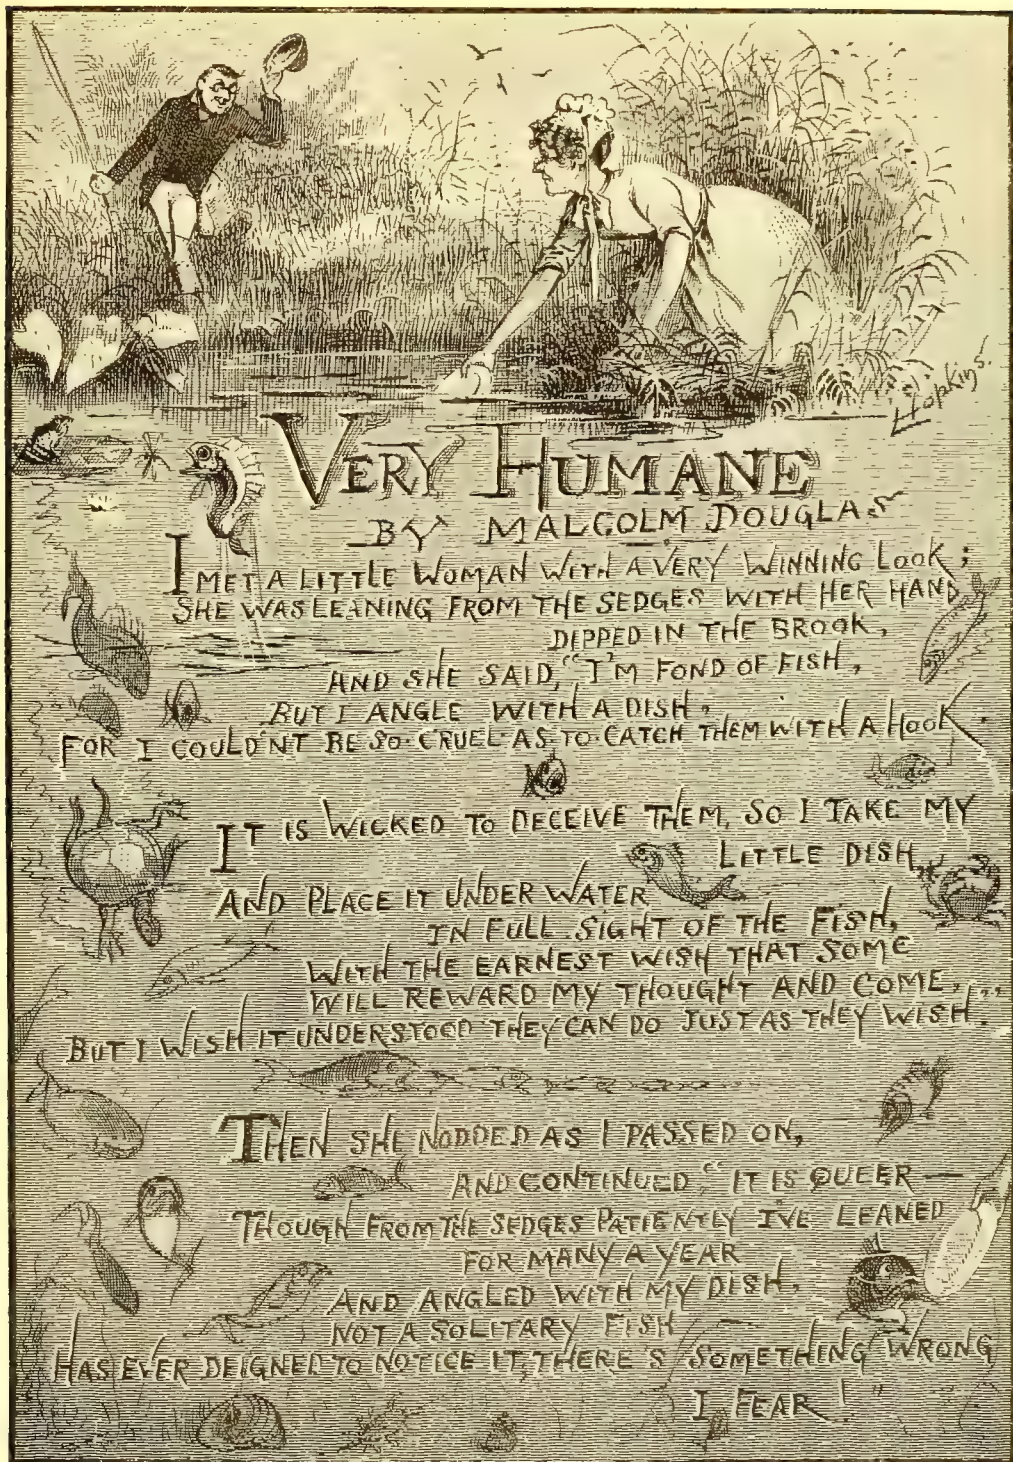 L Hopkins.
VERY HUMANE
BY MALCOLM DOUGLAS
I MET A LITTLE WOMAN WITH A VERY WINNING LOOK;
SHE WAS LEANING FROM THE SEDGES WITH HER HAND
DIPPED IN THE BROOK,
AND SHE SAID, "I'M FOND OF FISH,
BUT I ANGLE WITH A DISH,
FOR I COULD'NT BE SO CRUEL AS TO CATCH THEM WITH A HOOK.
IT IS WICKED TO DECEIVE THEM, SO I TAKE MY
LITTLE DISH,
AND PLACE IT UNDER WATER
IN FULL SIGHT OF THE FISH,
WITH THE EARNEST WISH THAT SOME
WILL REWARD MY THOUGHT AND COME,
BUT I WISH IT UNDERSTOOD THEY CAN DO JUST AS THEY WISH."
THEN SHE NODDED AS I PASSED ON,
AND CONTINUED "IT IS QUEER —
THOUGH FROM THE SEDGES PATIENTLY I'VE LEANED
FOR MANY A YEAR
AND ANGLED WITH MY DISH,
NOT A SOLITARY FISH
HAS EVER DEIGNED TO NOTICE IT, THERE'S SOMETHING WRONG
I FEAR!"